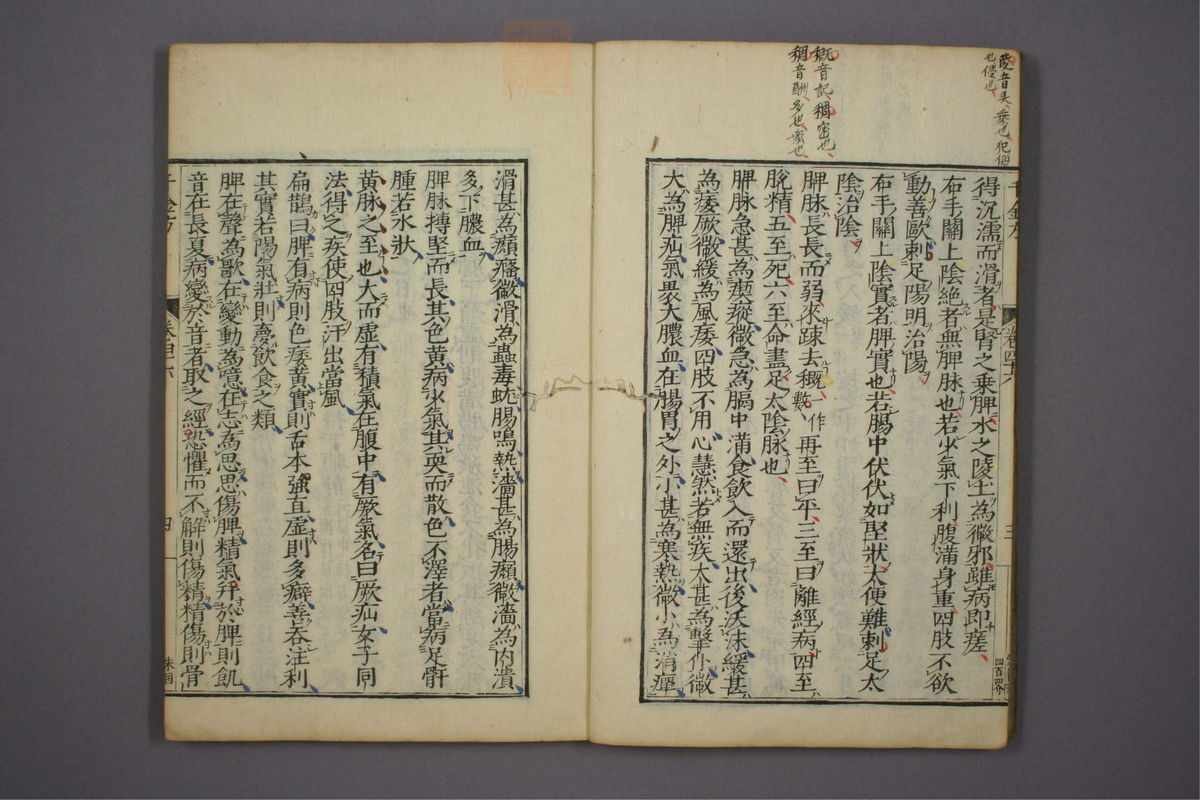 得沉濡而滑者是腎之乘脾水之陵土為微邪雖病即瘥
右手關上陰絕者無脾脉也若少氣下利腹滿身重四肢不欲
動善歐刺足陽明治陽
右手關上陰實者脾實也若腸中伏伏如堅狀大便難刺足太
陰治陰
脾脉長長而弱來踈去穊一作數再至曰平三至曰離經病四至
脫精五至死六至命盡足太陰脉也
脾脉急甚為瘈瘲微急為膈中滿食飲入而還出後沃沫緩甚
為痿厥微緩為風痿四肢不用心慧然若無疾大甚為擊仆微
大為脾疝氣畏大膿血在腸胃之外小甚為寒熱微小為消癉
滑甚為癩癃微滑為蟲毒蚘腸鳴熱濇甚為腸癩微濇為內潰
多下膿血
脾脉搏堅而長其色黃病少氣其耎而散色不澤者當病足䯒
腫若水狀
黃脉之至也大而虛有積氣在腹中有厥氣名曰厥疝女子同
法得之疾使四肢汗出當風
扁鵲曰脾有病則色痿黃實則舌本強直虛則多癖善吞注利
其實若陽氣壯則夢飲食之類
脾在聲為歌在變動為噫在志為思思傷脾精氣并於脾則飢
音在長夏病變於音者取之經恐懼而不解則傷精精傷則骨
穊音記稠密也
稠音酬多也衆也
千金方
卷四十六
三
四百四十
卷四十六
四